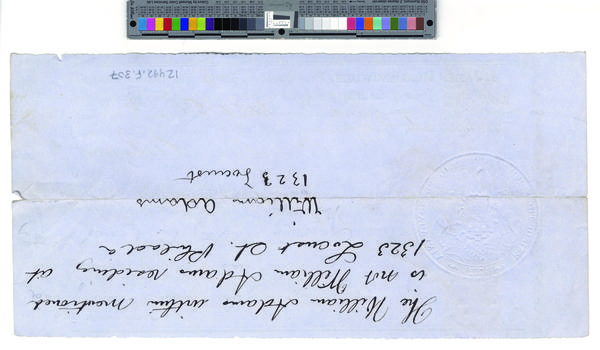 The William Adams within mentioned
is not William Adams residing at
1323 Locust St. Philada
William Adams
1323 Locust
12492.F.307